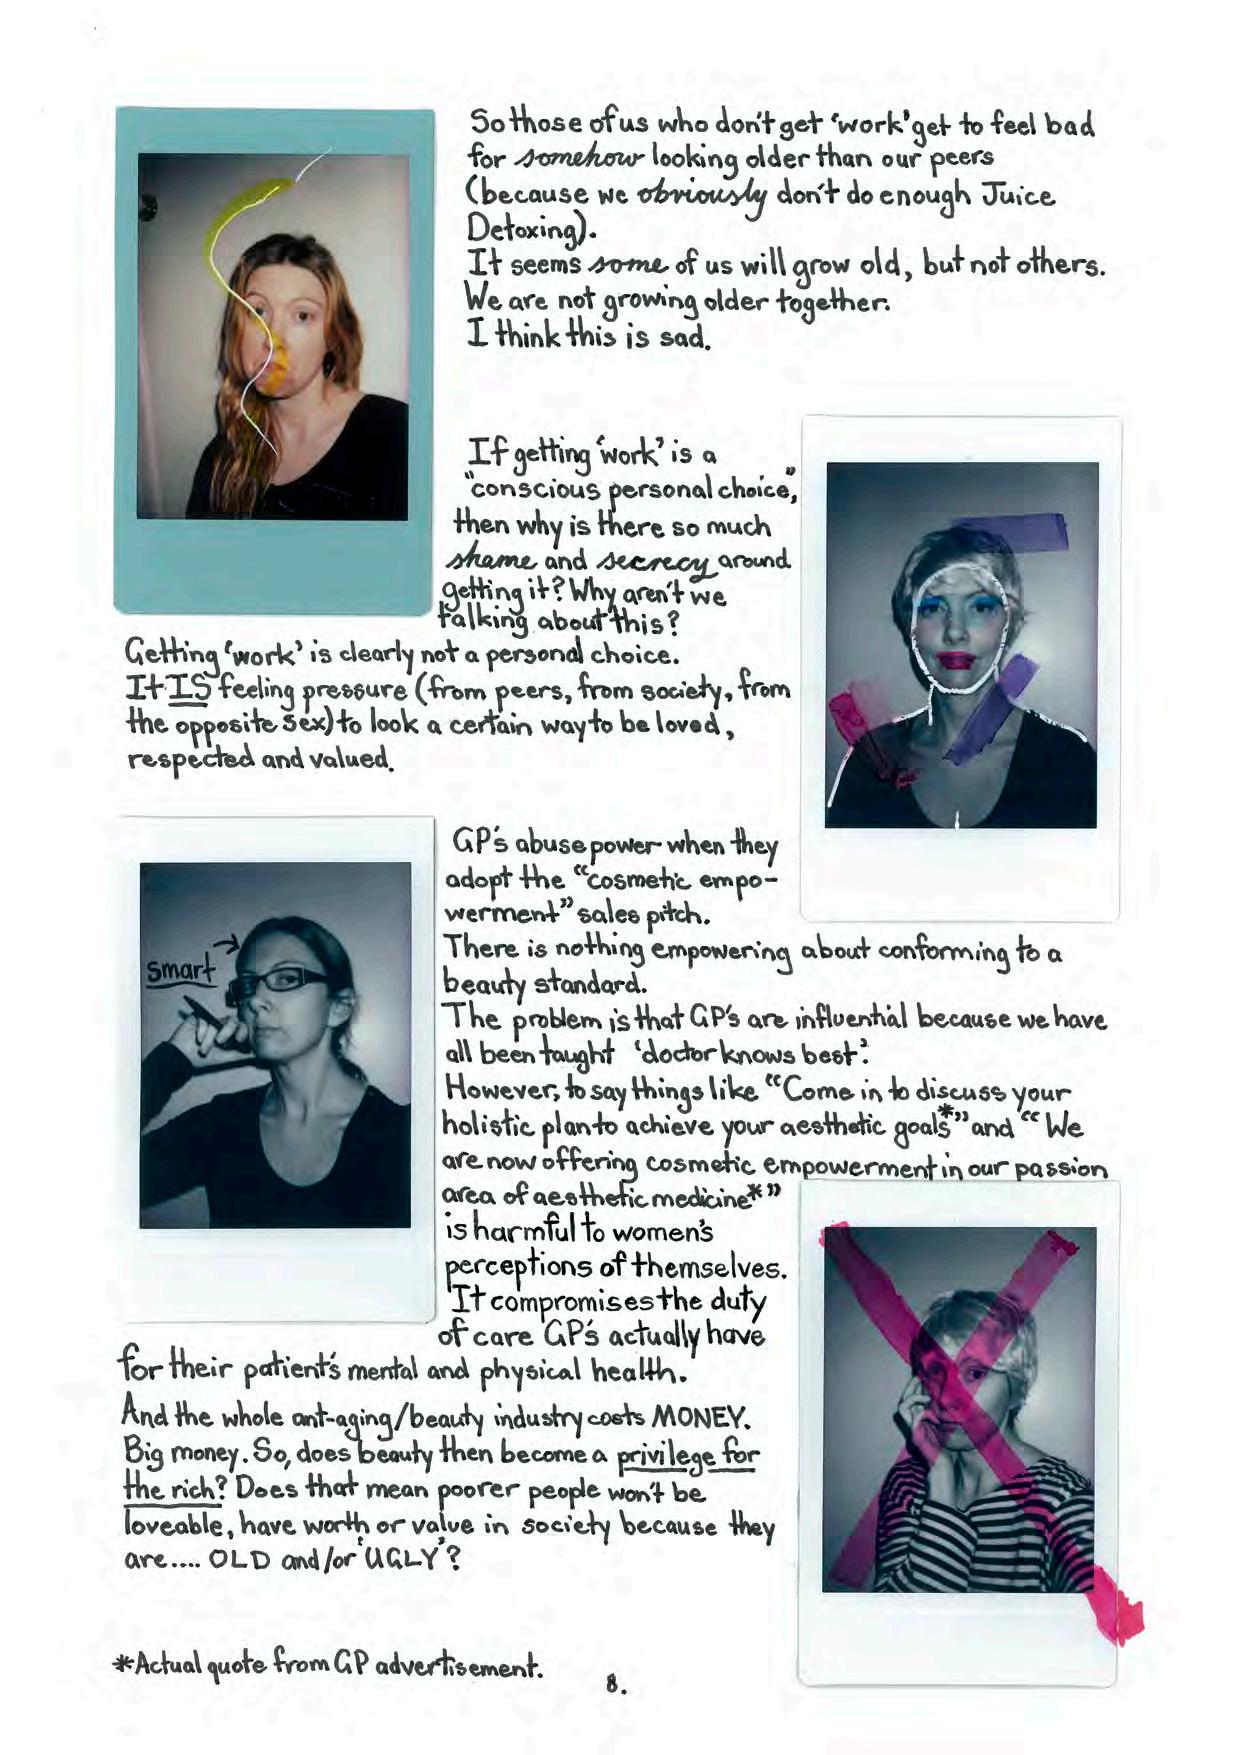 So those of us who don't get 'work' get to feel bad
for somehow looking older than our peers
(because we obviously don't do enough Juice
Detoxing).
It seems some of us will grow old, but not others.
We are not growing older together.
I think this is sad.
If getting 'work' is a
"conscious personal choice,"
then why is there so much
shame and secrecy around
getting it? Why aren't we
talking about this?
Getting 'work' is clearly not a personal choice.
It IS feeling pressure (from peers, from society, from
the opposite sex) to look a certain way to be loved,
respected and valued.
smart
GP's abuse power when they
adopt the "cosmetic empo-
werment" sales pitch.
There is nothing empowering about conforming to a
beauty standard.
The problem is that GP's are influential because we have
all been taught 'doctor knows best'.
However, to say things like "Come in to discuss your
holistic plan to achieve your aesthetic goals*" and "We
are now offering cosmetic empowerment in our passion
area of aesthetic medicine*"
is harmful to women's
perceptions of themselves.
It compromises the duty
of care GP's actually have
for their patient's mental and physical health.
And the whole ant-aging/beauty industry costs MONEY.
Big money. So, does beauty then become a privilege for
the rich? Does that mean poorer people won't be
loveable, have worth or value in society because they
are.... OLD and/or 'UGLY'?
*Actual quote from GP advertisement.
8.